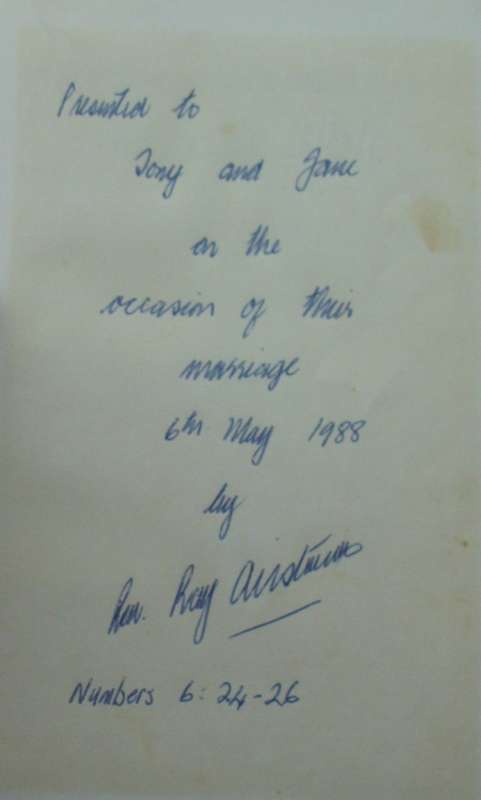 Presented to
Tony and Jane
on the
occasion of their
marriage
6th May 1988
by
Rev. Ray
Numbers 6:24-26